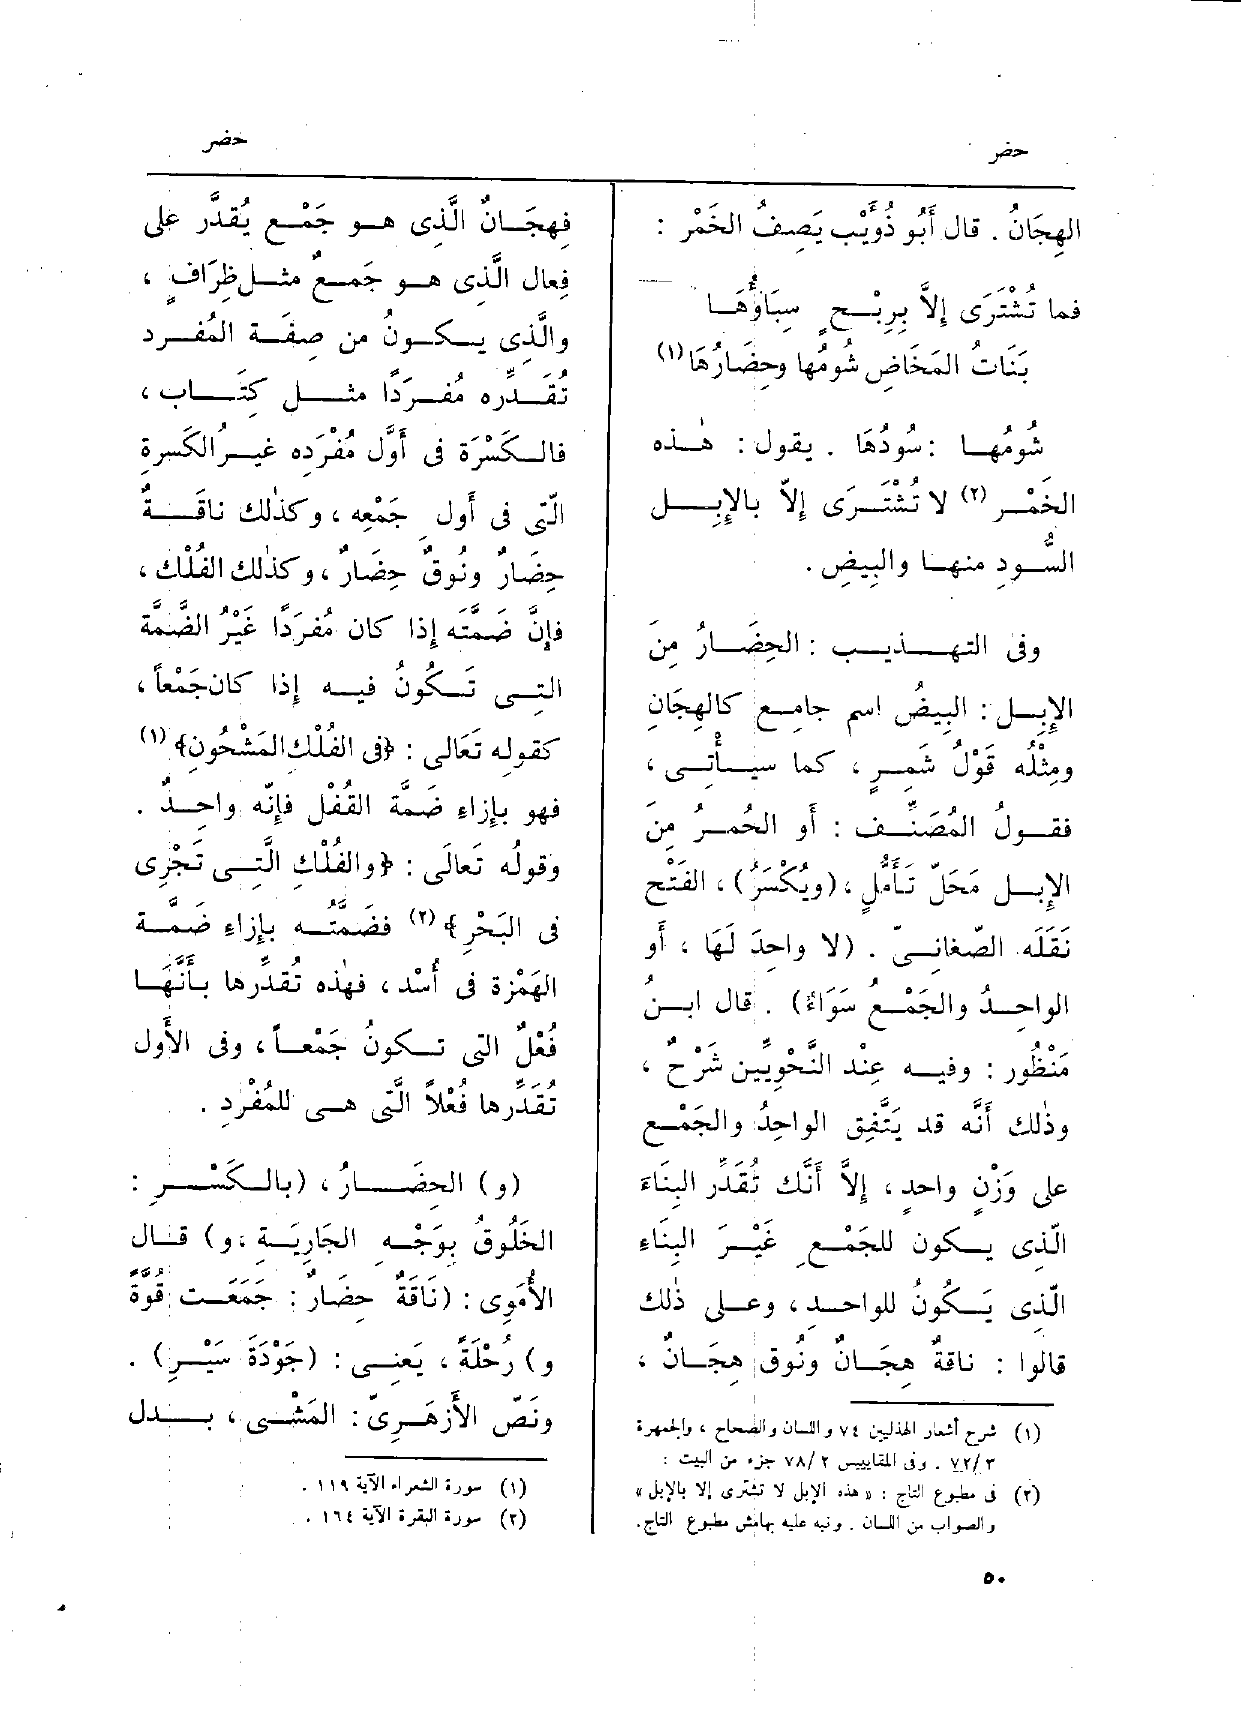 حضر
حضر
الهِجَانُ . قال أَبُو ذُؤَيْب يَصِفُ الخَمْر :
فما تُشْتَرَى إِلاَّ بِرِبْحٍ سِبَاؤُهَا
بَنَاتُ المَخَاضِ شُومُها وحِضَارُهَا (١)
شُومُها : سُودُهَا . يقول : هٰذه
الخَمْر (٢) لا تُشْتَرَى إِلاَّ بالإِبِل
السُّودِ منها والبِيضِ .
وفى التهذيب : الحِضَارُ مِنَ
الإِبِل : البِيضُ اسم جامِع كالهِجَانِ
ومِثْلُه قَوْلُ شَمِرٍ ، كما سيأْتى ،
فقولُ المُصَنِّف : أَو الحُمرُ من
الإِبل مَحَلّ تَأَمُّلٍ ، (ويُكْسَرُ) ، الفَتْح
نَقَلَه الصّغانىّ . (لا واحِدَ لَها ، أَو
الواحِدُ والجَمْعُ سَوَاءٌ) . قال ابنُ
مَنْظُور : وفيه عِند النَّحْوِيِّين شَرْحٌ ،
وذٰلك أَنَّه قد يَتَّفِق الواحِدُ والجَمْع
على وَزْنٍ واحدٍ ، إِلاَّ أَنَّك تُقَدِّر البِنَاءَ
الَّذِى يكونُ للجَمْعِ غَيْرَ البِنَاءِ
الَّذِى يَكُونُ للواحِدِ ، وعلى ذٰلك
قالوا : ناقةٌ هِجَانٌ ونُوقٌ هِجَانٌ ،
(١) شرح أشعار الهذليين ٧٤ واللسان والصحاح ، والجمهرة
٧٢/٣ . وفى المقاييس ٧٨/٢ جزء من البيت :
(٢) فى مطبوع التاج : « هذه الإبل لا تشترى إلا بالإبل »
والصواب من اللسان . ونبه عليه بهامش مطبوع التاج.
فهِجَانٌ الَّذِى هو جَمْع يُقدَّر على
فِعَال الَّذِى هو جَمعٌ مثل ظِرَافٍ ،
والَّذِى يكونُ من صِفَة المُفرد
تُقَدِّره مُفرَدًا مثل كِتَاب ،
فالكَسْرَة فى أَوَّل مُفْرَده غيرُ الكَسرة
الَّتِى فى أَول جَمْعِه ، وكذٰلك ناقَةٌ
حِضَارٌ ونُوقٌ حِضَارٌ ، وكذٰلك الفُلْك ،
فإِنَّ ضَمَّتَه إِذا كان مُفْرَدًا غَيْرُ الضَّمَّة
التى تَكُونُ فيه إِذا كان جَمْعاً ،
كقوله تَعَالى : ﴿فى الفُلْك المَشْحُون﴾ (١)
فهو بإِزاء ضَمَّة القُفْل فإِنَّه واحدٌ .
وقولُه تَعَالَى : ﴿والفُلْكِ الَّتى تَجْرِى
فى البَحْرِ﴾ (٢) فضَمَّتُه بإِزاءِ ضَمَّة
الهَمْزة فى أُسْد ، فهٰذه تُقَدِّرها بأَنَّهَا
فُعْلٌ التى تكونُ جَمْعاً ، وفى الأَول
تُقَدِّرها فُعْلاً الَّتِى هى للمُفْرَدِ .
(و) الحِضَارُ ، (بالكَسْرِ :
الخَلُوقُ بوَجْهِ الجَارِيَةِ ، و) قال
الأُمَوِى : (نَاقَةٌ حِضَارٌ : جَمَعَت قُوَّةً
و) رُحْلَةً ، يَعنِى : (جَوْدَةَ سَيْرٍ) .
ونَصّ الأَزهَرِىّ : المَشْى ، بدل
(١) سورة الشعراء الآية ١١٩ .
(٢) سورة البقرة الآية ١٦٤ .
٥٠